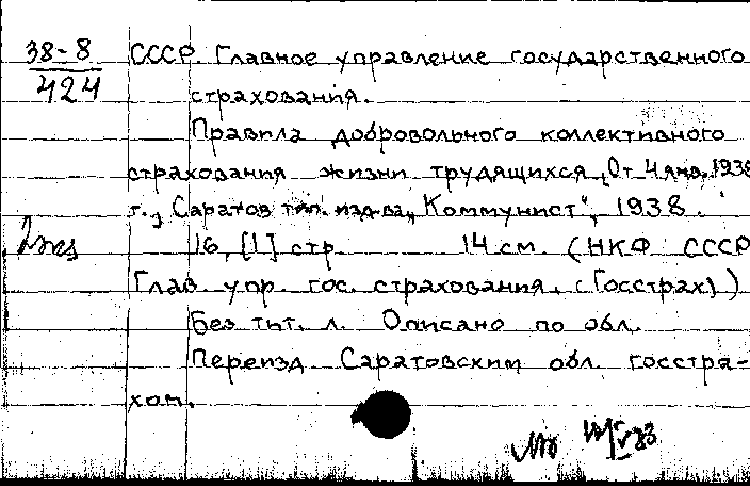 38-8
424
СССР. Главное управление государственного
страхования.
Правила добровольного коллективного
страхования жизни трудящихся [От 4 янв. 1938
г.] Саратов тип. изд-ва „Коммунист", 1938.
2 экз
16, [1] стр. 14 см. (НКФ СССР
Глав. упр. гос. страхования. (Госстрах))
Без тит. л. Описано по обл.
Переизд. Саратовским обл. госстра-
хом.